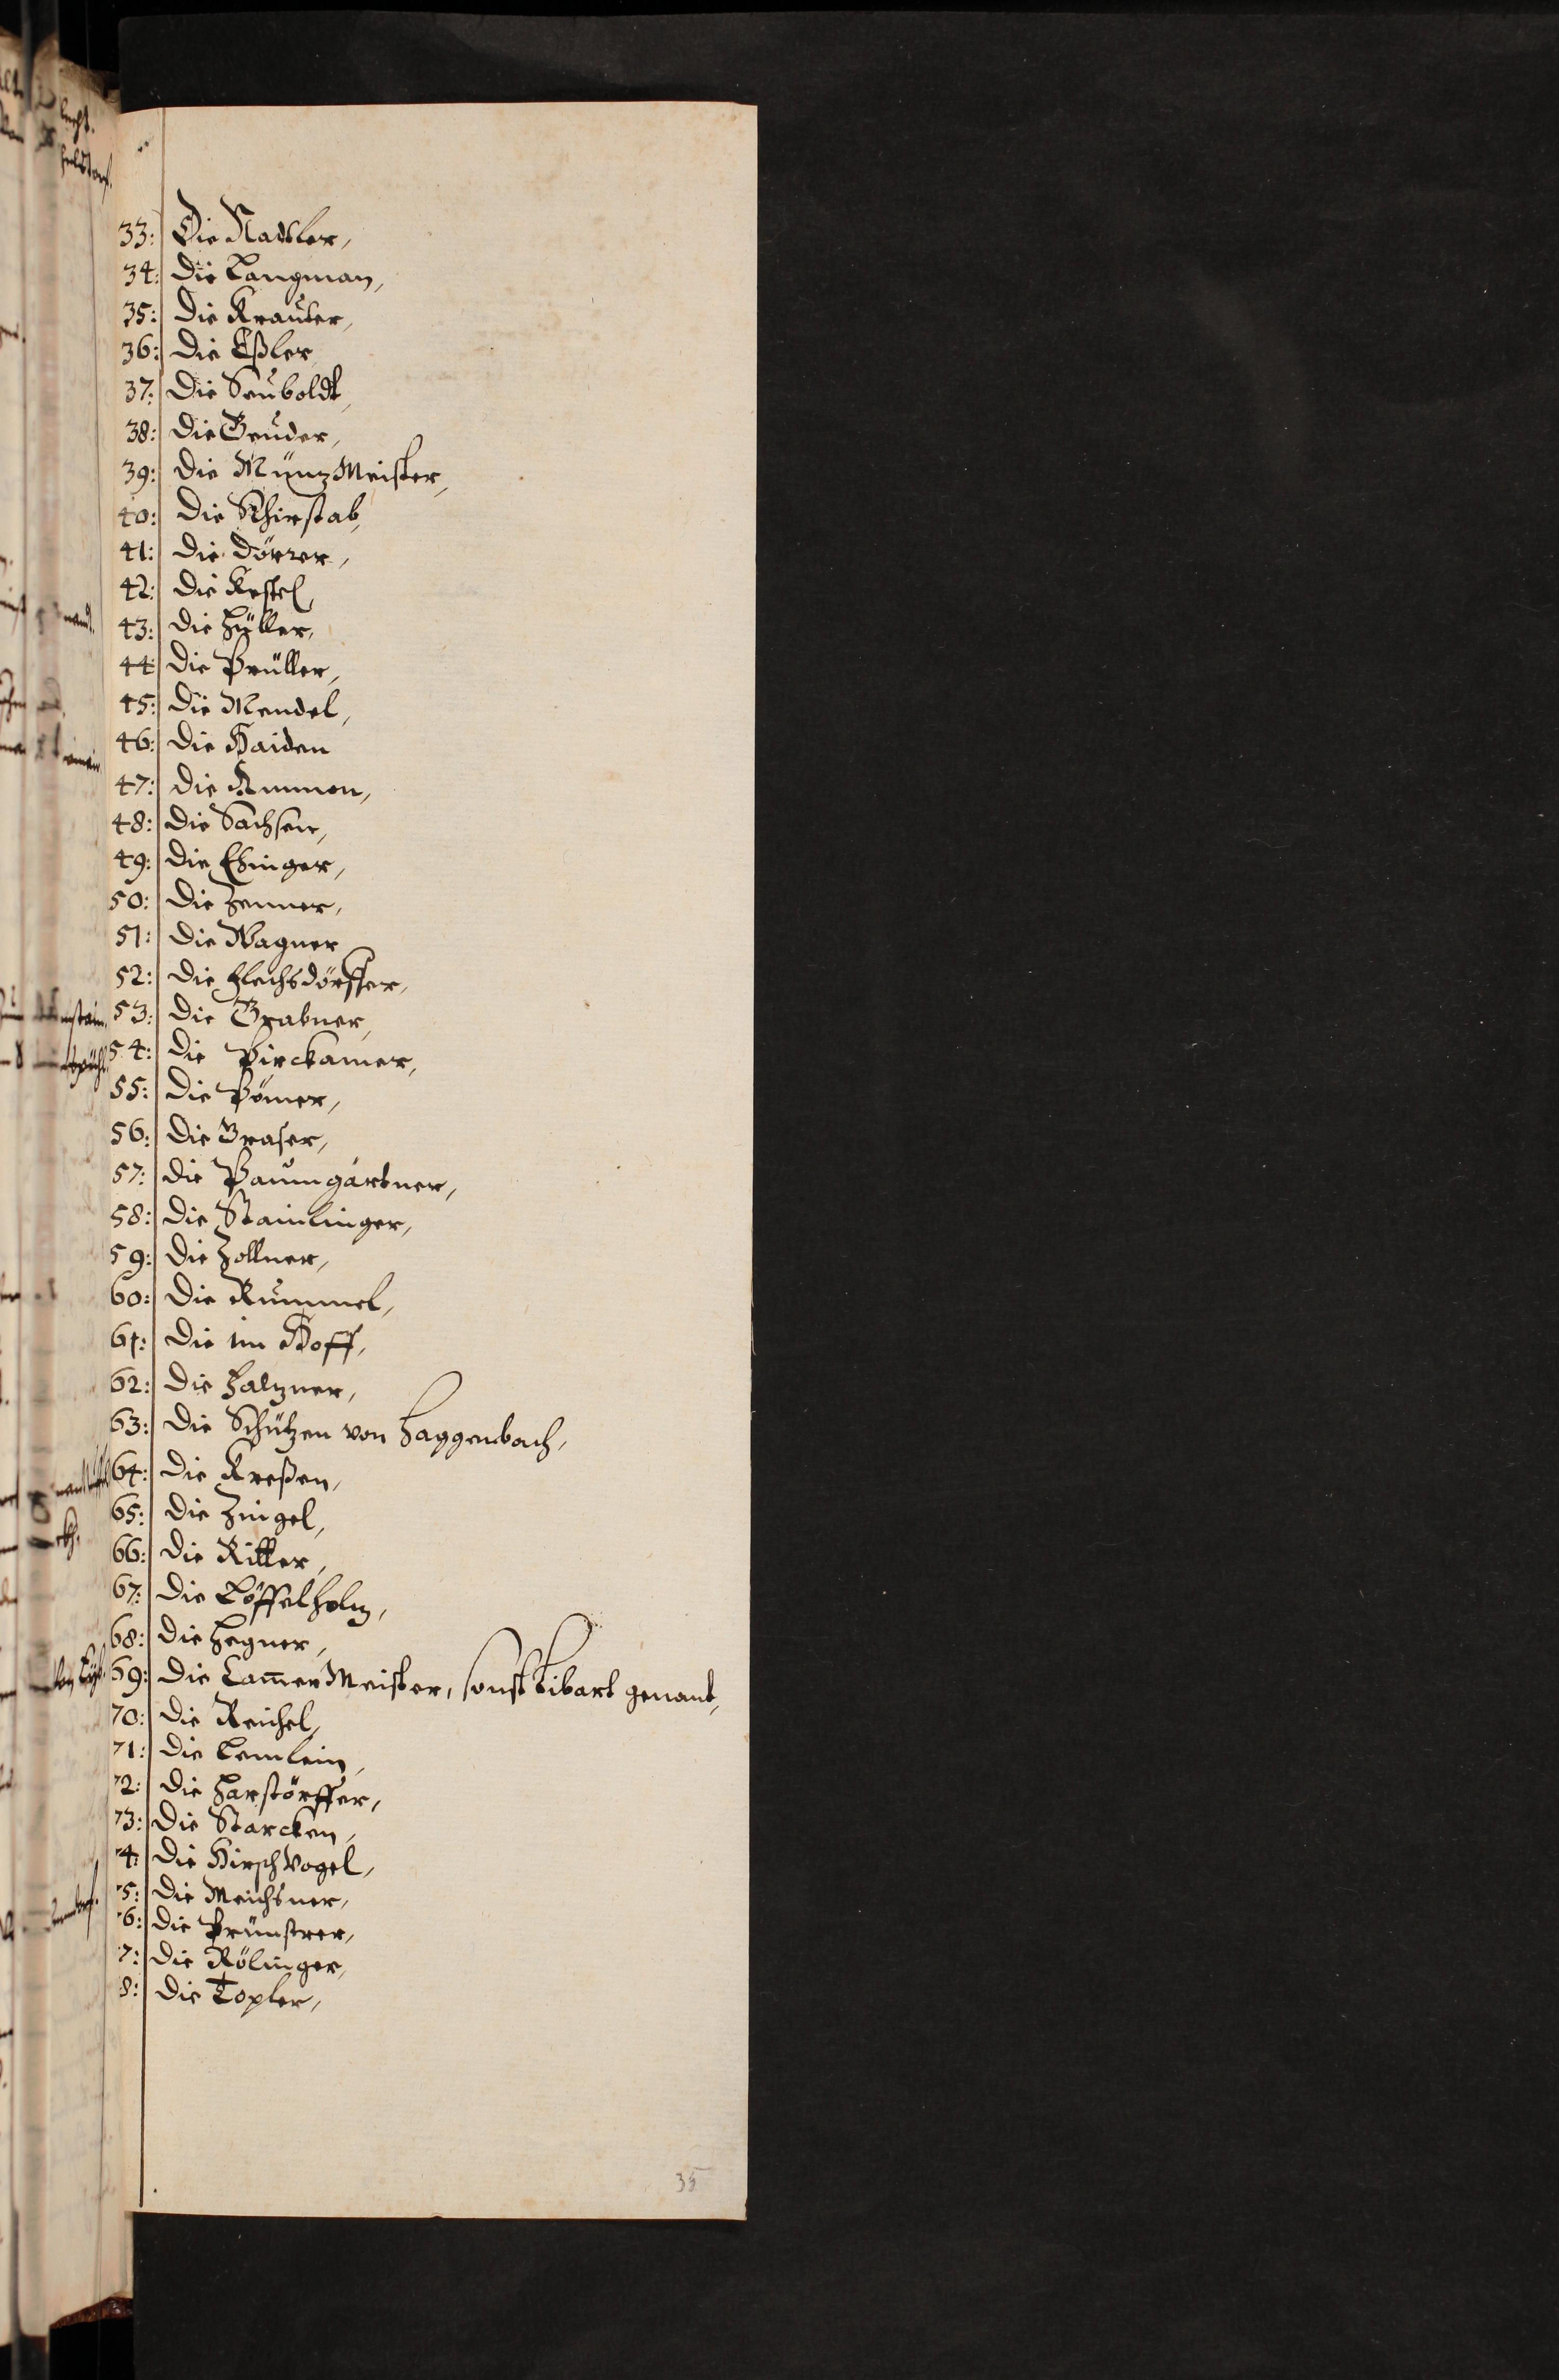 33: Die Nadler,
34: die Langman,
35: die Krauter,
36: die Eßler
37: die Seuboldt,
38: die Geuder,
39: die MünzMeister,
40: die Schirstab,
41: die dörrer,
42: die Kestel,
43: die Hüller,
44 die Prüller,
45: die Mendel,
46: die Haiden
47: die Ammon,
48: die Sachsen,
49: die Ehinger,
50: die Zenner,
51: die Wagner
52: die Flechsdörffer,
53: die Grabner,
54: die Pirckamer,
55: die Pömer,
56: die Graser,
57: die Paumgärtner,
58: die Stainlinger,
59: die Zollner,
60: die Rummel,
61: die im Hoff,
62: die Falzner,
63: die Schützen von Haggenbach,
64: die Kreßen,
65: die Zingel,
66: die Ritter,
67: die Löffelholz,
68: die Hegner,
69: die Camer Meister, sonst Libart genant,
70: die Reichel,
71: die Lemlein,
72: die Harstörffer,
73: die Starcken,
74: die HirschVogel,
75: die Meichsner,
76: die Prünstrer,
7: die Rölinger,
8: die Topler,
35